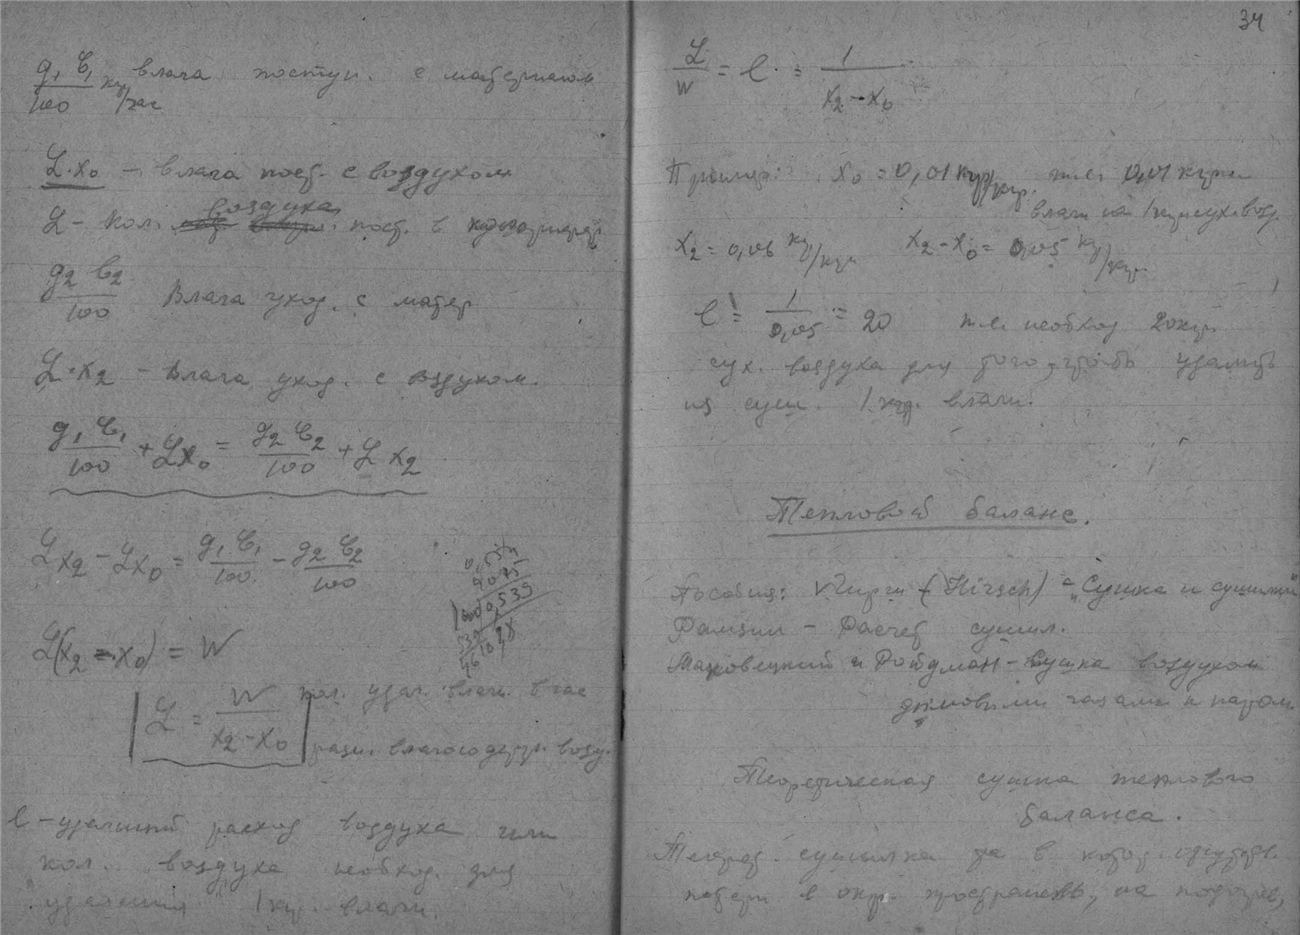 g₁ b₁ / 100 кгр/час влага поступ. с материалом
L·x₀ – влага пост. с воздухом
L – кол. воздуха пост. в
g₂ b₂ / 100 Влага уход. с матер
L·x₂ – Влага уход. с воздухом.
g₁ b₁ / 100 + Lx₀ = g₂ b₂ / 100 + L x₂
Lx₂ – Lx₀ = g₁ b₁ / 100 – g₂ b₂ / 100
L(x₂ – x₀) = W
L = W / x₂ – x₀ кол. удал. влаги в час
разн. влагосодерж. возд.
l – удельный расход воздуха или
кол. воздуха необход. для
удаления 1 кгр. влаги.
34
L / W = l = 1 / x₂ – x₀
Пример: x₀ = 0,01 кгр/кгр. т.е. 0,01 кгр
влаги на 1 кгр сух. возд.
x₂ = 0,06 кг/кгр x₂ – x₀ = 0,05 кг/кгр
l = 1 / 0,05 = 20 т.е. необход 20 кгр
сух. воздуха для того, чтобы удалить
из суш. 1 кгр. влаги.
Тепловой баланс.
Пособия: Гирш (Hirsch) – „Сушка и сушилки"
Рамзин – Расчет сушил.
и Ройтман – Сушка воздухом
дымовыми газами и паром
Теоретическая сушка теплового
баланса.
Теорет. сушилка та в котор. отсутств.
потери в окр. пространство, на подогрев,